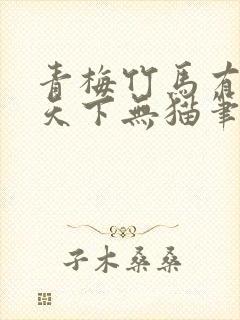 青梅竹馬有
天下無貓筆
子木桑桑